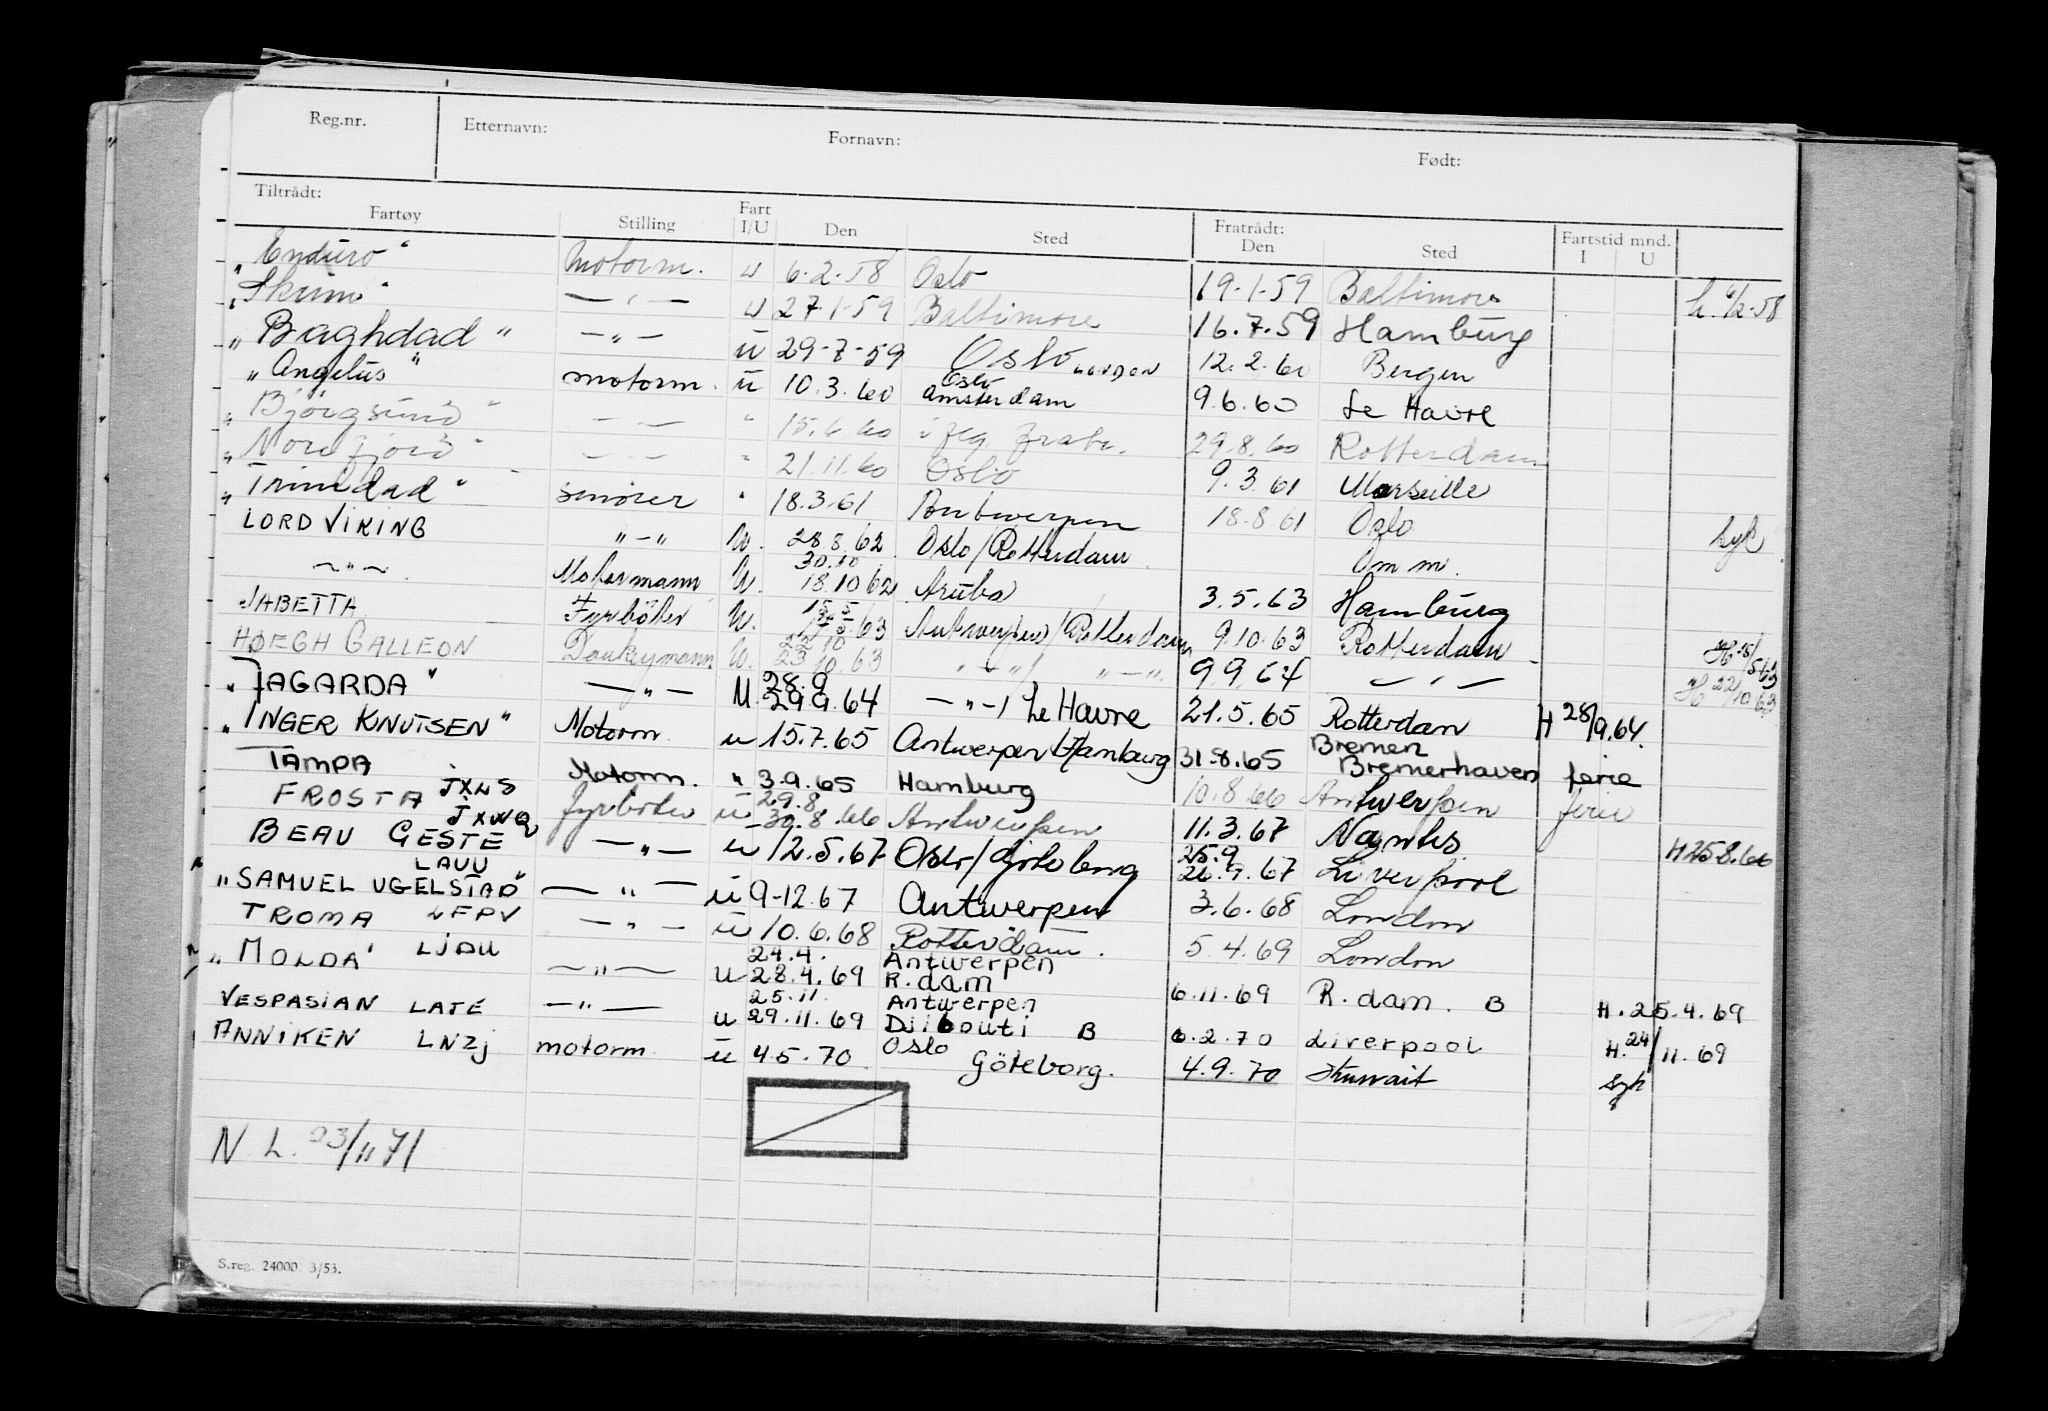 Reg.nr. Etternavn: Fornavn: Født:
Tiltrådt: Fartøy Stilling Fart I/U Den Sted Fratrådt: Den Sted Fartstid mnd. I U
"Enduro" Motorm. u 6.2.58 Oslo 19-1-59 Baltimore h. 6/2-58
"Skrim" — " — u 27.1-59 Baltimore 16.7.59 Hamburg
"Baghdad" — " — u 29-7-59 Oslo LONDON 12.2.60 Bergen
"Angelus" motorm. u 10.3.60 Oslo Amsterdam 9.6.60 Le Havre
"Bjørgsund" — — " 15.6.60 29.8.60 Rotterdam
"Nordfjord" — — " 21.11.60 Oslo 9.3.61 Marseille
"Trinidad" smører " 18.3.61 Antwerpen 18.8.61 Oslo syk
LORD VIKING " — " U. 28.8.62 Oslo/Rotterdam Om m.
— " — Motormann U. 30.10 18.10.62 Aruba 3.5.63 Hamburg
JABETTA Fyrbøter U. 63 Antwerpen/Rotterdam 9.10.63 Rotterdam H 15/5 63
HØEGH GALLEON Donkeymann U. 22.10 23.10.63 — " — / — " — 9.9.64 — " — H 22/10 63
"JAGARDA" — " — U. 28.9 29.9.64 — " — / Le Havre 21.5.65 Rotterdam H 28/9.64.
"INGER KNUTSEN" Motorm. u 15.7.65 Antwerpen/Hamburg 31.8.65 Bremen Bremerhaven ferie
TAMPA JXLS Motorm. " 3.9.65 Hamburg 10.8.66 Antwerpen ferie
FROSTA JXWQ fyrbøter u 29.8 30.8.66 Antwerpen 11.3.67 Nantes H 25.8.66
BEAU GESTE LAUU — " — u 12.5.67 Oslo/Göteborg 25.9 26.9.67 Liverpool
"SAMUEL UGELSTAD" — " — u 9-12.67 Antwerpen 3.6.68 London
TROMA LFPV — " — u 10.6.68 Rotterdam. 5.4.69 London
"MOLDA" LJDU — " — u 24.4. 28.4.69 Antwerpen R.dam 6.11.69 R.dam. B H. 25.4.69
VESPASIAN LATE — " — u 25.11. 29.11.69 Antwerpen Djibouti B 6.2.70 Liverpool H. 24/11.69
ANNIKEN LNZJ motorm. u 4.5.70 Oslo Göteborg. 4.9.70 Kuwait syk
N.L. 23/11 71
S.reg. 24000 3/53.